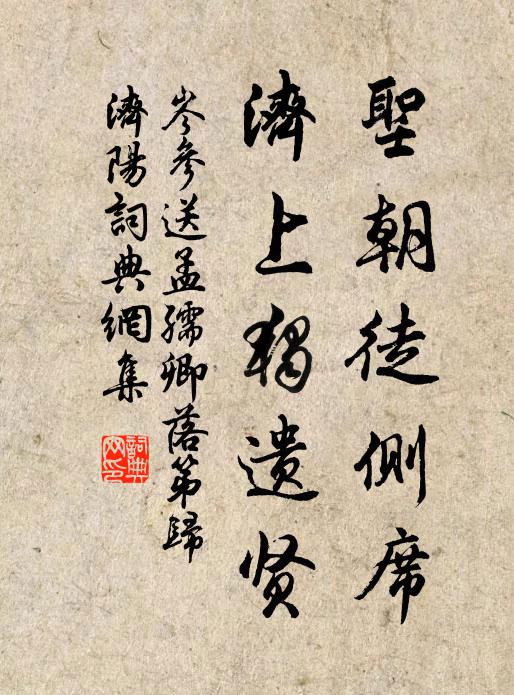 聖朝徒側席
濟上獨遺贤
岑參送孟孺卿落第歸
濟陽詞典網集
詞典网印